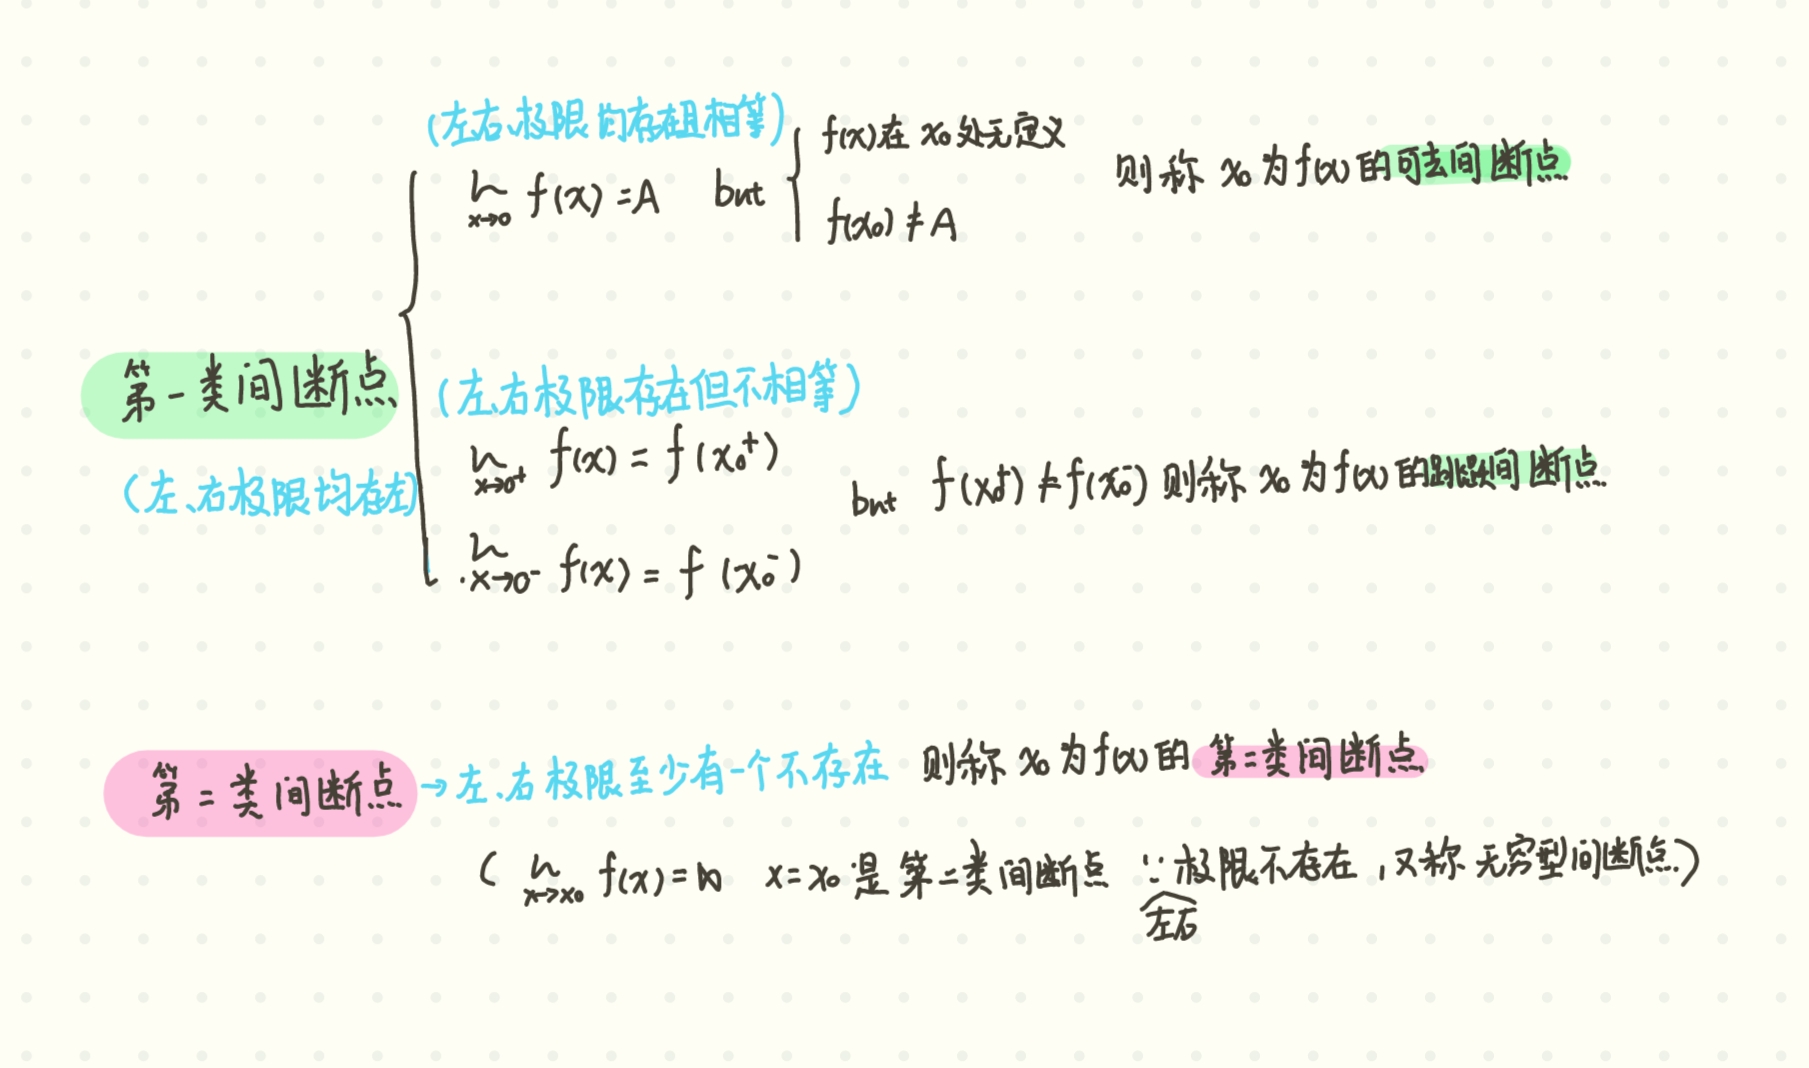 (左右极限均存在且相等)
lim x→0 f(x)=A but { f(x)在 x₀ 处无定义
f(x₀)≠A
则称 x₀ 为f(x)的可去间断点
第一类间断点
(左、右极限均存在)
(左、右极限存在但不相等)
lim x→0⁺ f(x) = f(x₀⁺)
lim x→0⁻ f(x) = f(x₀⁻)
but f(x₀⁺)≠f(x₀⁻) 则称 x₀ 为f(x)的跳跃间断点
第二类间断点 → 左、右极限至少有一个不存在 则称 x₀ 为f(x)的 第二类间断点
( lim x→x₀ f(x)=∞ x=x₀ 是 第二类间断点 ∵极限不存在,又称 无穷型间断点)
左右